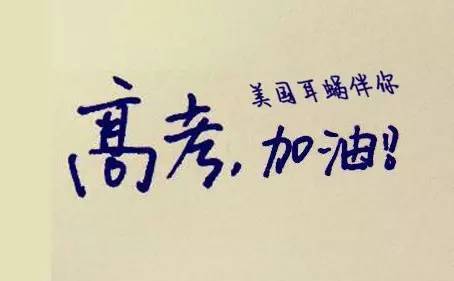 美国耳蜗伴你
高考,加油!!